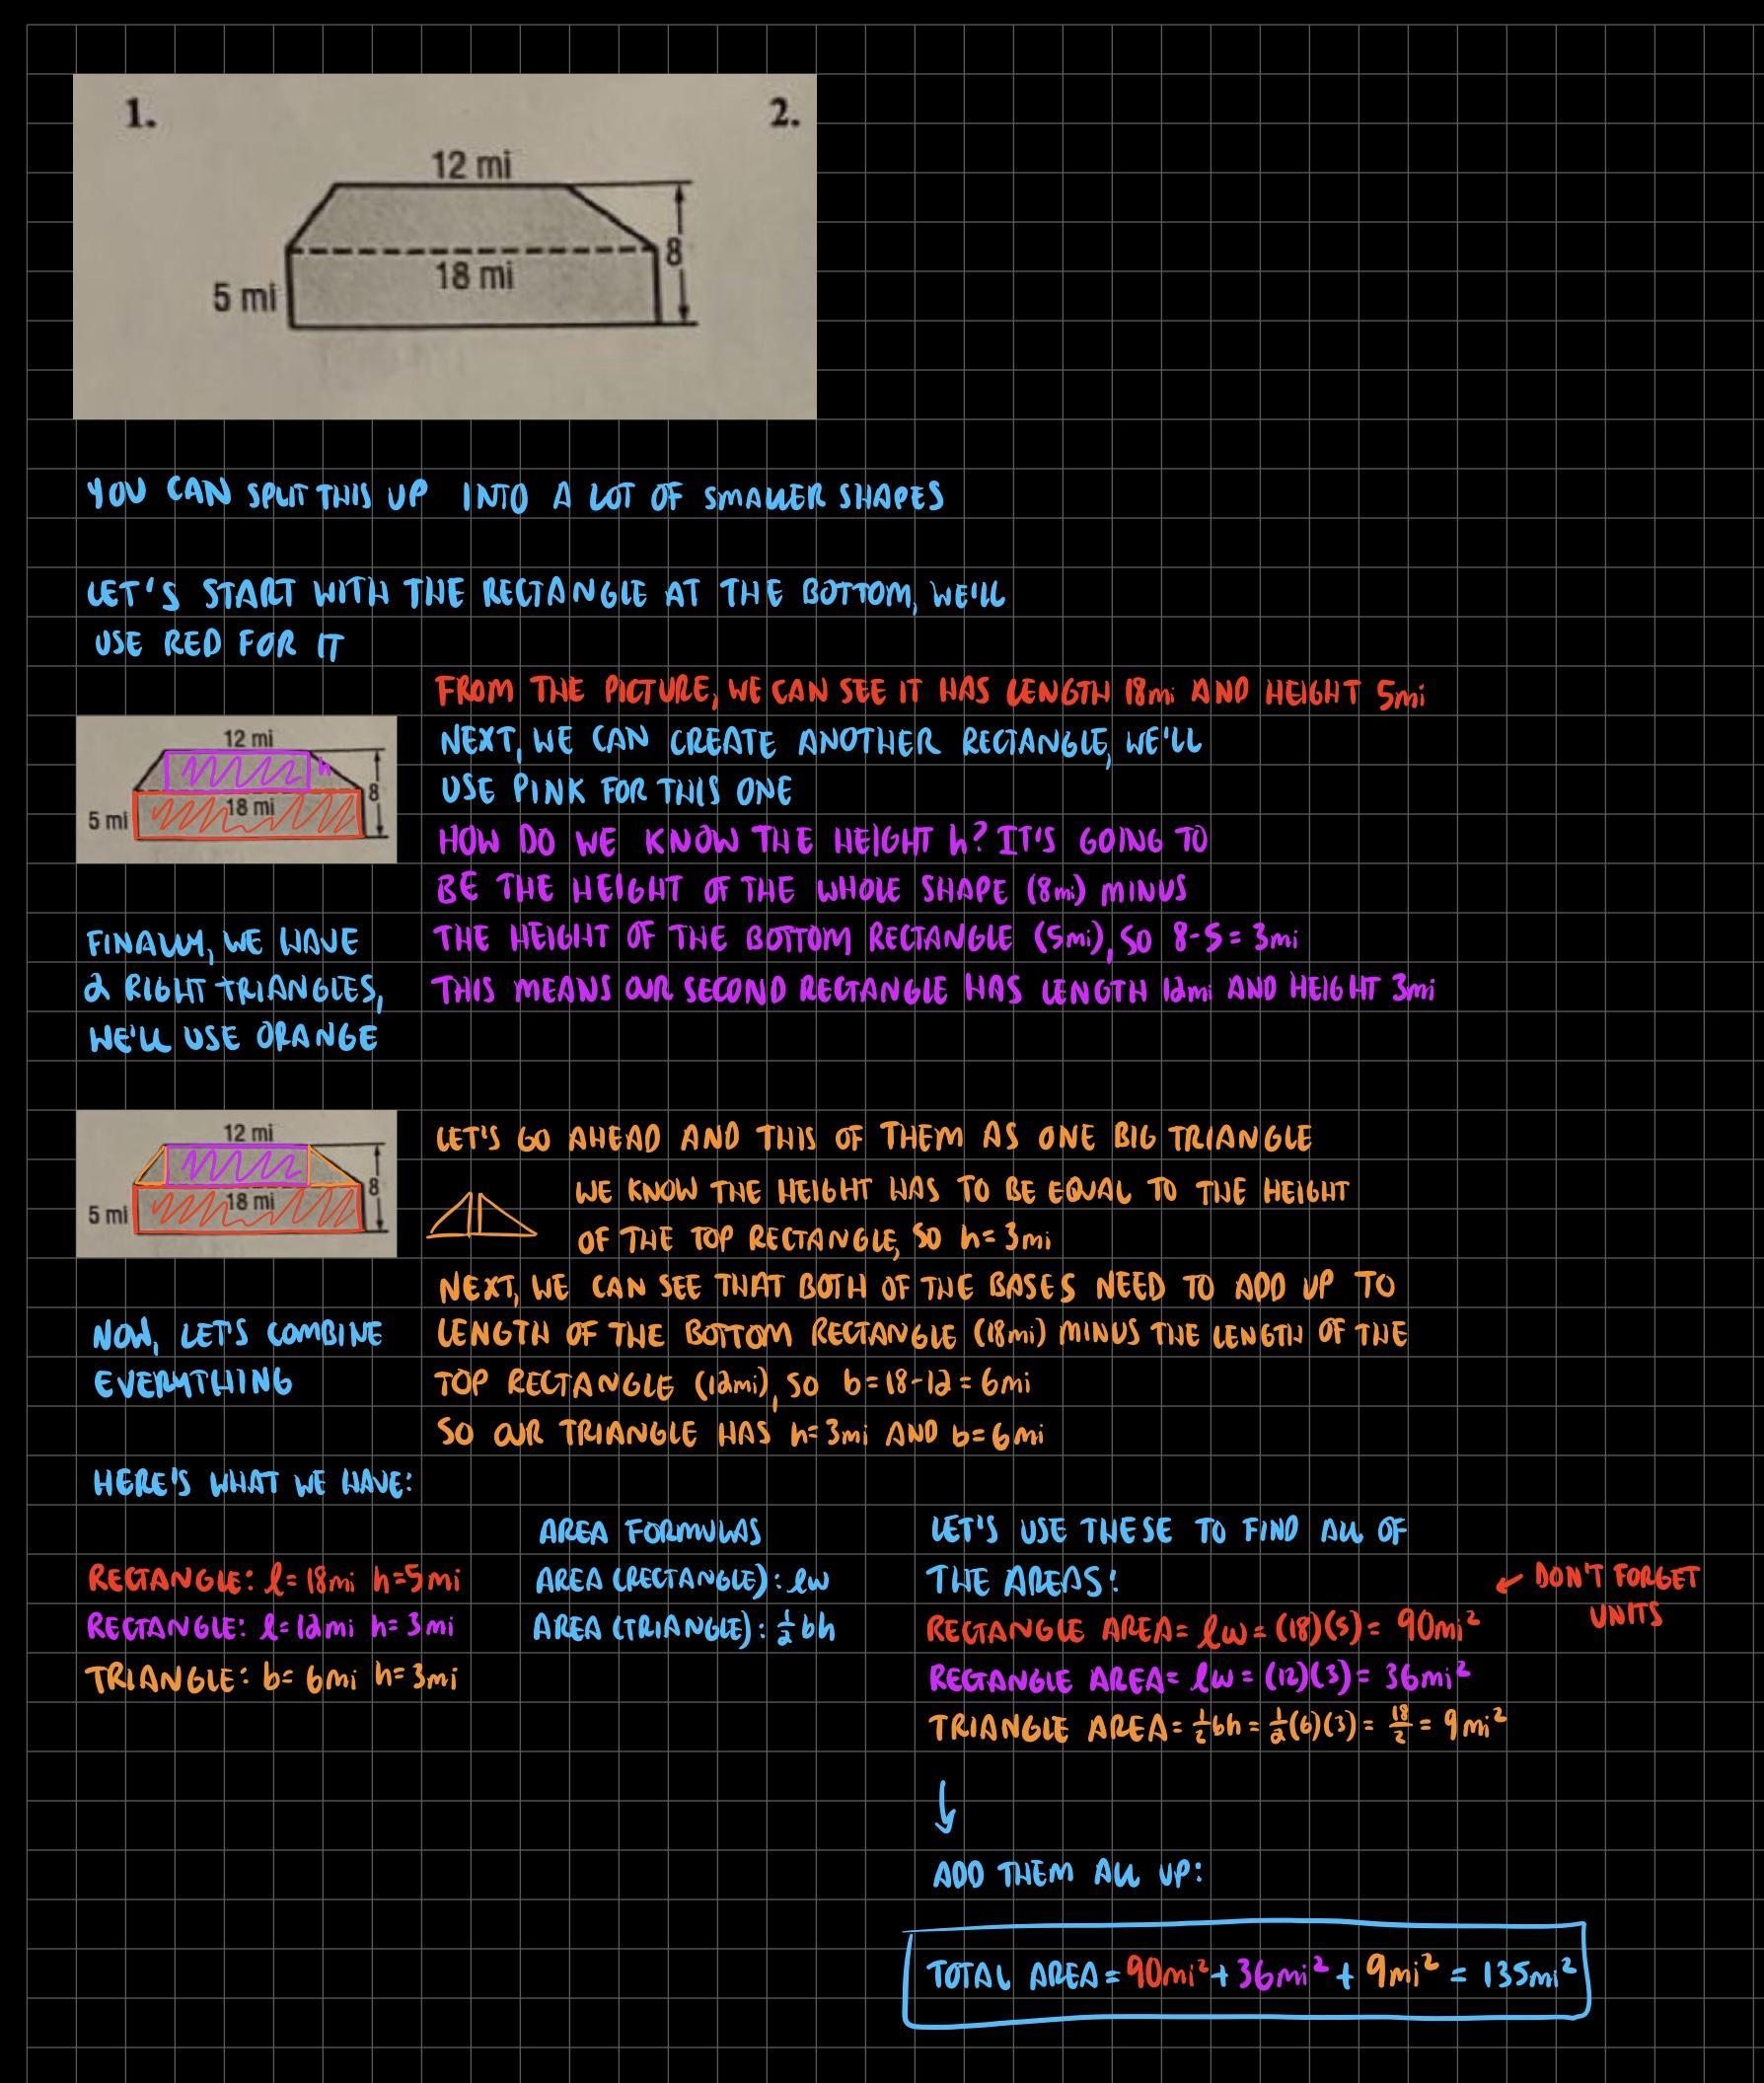 1.
2.
12 mi
8
18 mi
5 mi
YOU CAN SPLIT THIS UP INTO A LOT OF SMALLER SHAPES
LET'S START WITH THE RECTANGLE AT THE BOTTOM, WE'LL
USE RED FOR IT
FROM THE PICTURE, WE CAN SEE IT HAS LENGTH 18mi AND HEIGHT 5mi
12 mi
h
8
18 mi
5 mi
NEXT, WE CAN CREATE ANOTHER RECTANGLE, WE'LL
USE PINK FOR THIS ONE
HOW DO WE KNOW THE HEIGHT h? IT'S GOING TO
BE THE HEIGHT OF THE WHOLE SHAPE (8mi) MINUS
THE HEIGHT OF THE BOTTOM RECTANGLE (5mi), SO 8-5=3mi
THIS MEANS OUR SECOND RECTANGLE HAS LENGTH 12mi AND HEIGHT 3mi
FINALLY, WE HAVE
2 RIGHT TRIANGLES,
WE'LL USE ORANGE
12 mi
8
18 mi
5 mi
LET'S GO AHEAD AND THIS OF THEM AS ONE BIG TRIANGLE
WE KNOW THE HEIGHT HAS TO BE EQUAL TO THE HEIGHT
OF THE TOP RECTANGLE, SO h=3mi
NEXT, WE CAN SEE THAT BOTH OF THE BASES NEED TO ADD UP TO
LENGTH OF THE BOTTOM RECTANGLE (18mi) MINUS THE LENGTH OF THE
TOP RECTANGLE (12mi), SO b=18-12=6mi
SO OUR TRIANGLE HAS h=3mi AND b=6mi
NOW, LET'S COMBINE
EVERYTHING
HERE'S WHAT WE HAVE:
RECTANGLE: l=18mi h=5mi
RECTANGLE: l=12mi h=3mi
TRIANGLE: b=6mi h=3mi
AREA FORMULAS
AREA (RECTANGLE): lw
AREA (TRIANGLE): 1/2 bh
LET'S USE THESE TO FIND ALL OF
THE AREAS!
RECTANGLE AREA= lw=(18)(5)= 90mi²
← DON'T FORGET
UNITS
RECTANGLE AREA= lw=(12)(3)= 36mi²
TRIANGLE AREA= 1/2 bh = 1/2 (6)(3) = 18/2 = 9mi²
ADD THEM ALL UP:
TOTAL AREA=90mi²+36mi²+9mi²=135mi²